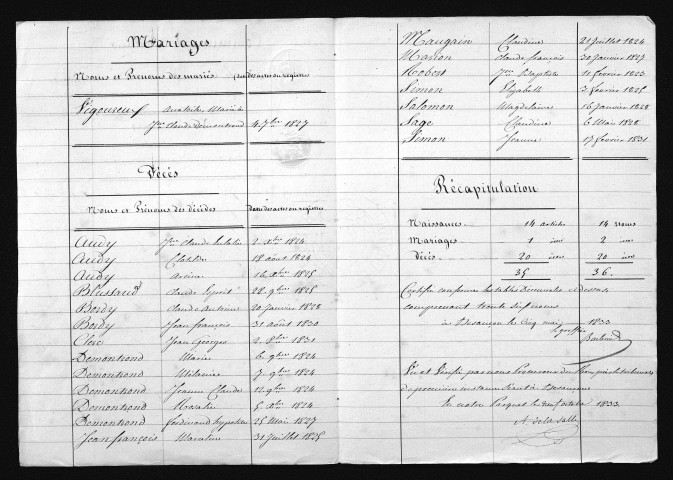 Mariages
Noms et Prénoms des mariés Dates des actes ou registres
Vigoureux
Jn Claude Demontrond 4 7bre 1827
Décès
Noms et Prénoms des décédés Dates des actes ou registres
Audy Jn Claude 2 Xbre 1824
Audy Clotilde 18 août 1824
Audy 16 Xbre 1825
Claude 28 9bre 1828
Bordy Claude Antoine 20 janvier 1828
Bordy Jean françois 31 août 1830
Clerc Jean Georges 2 8bre 1831
Demontrond Marie 6 9bre 1824
Demontrond 7 9bre 1824
Demontrond Jeanne Claude 12 9bre 1824
Demontrond Rosalie 5 Xbre 1824
Demontrond ferdinand hypolite 25 Mai 1827
Jean françois 31 juillet 1825
Maugain Claudine 21 juillet 1824
Masson Claude françois 30 janvier 1823
Robert Jn Baptiste 11 fevrier 1823
Simon Elizabeth 3 fevrier 1825
Salomon Magdelaine 16 janvier 1828
Sage Claudine 6 Mars 1828
Simon Jeanne 17 fevrier 1831
Récapitulation
Naissances 14 articles 14 noms
Mariages 1 idem 2 idem
Décès 20 idem 20 idem
35 36
Certifié conforme les tables décennales ci dessus
comprenant trente six noms
à Besançon le cinq mai 1833
Le greffier
Vu et Vérifié par nous Procureur du Roi près le tribunal
de première instance séant à Besançon
En notre Parquet le 1833